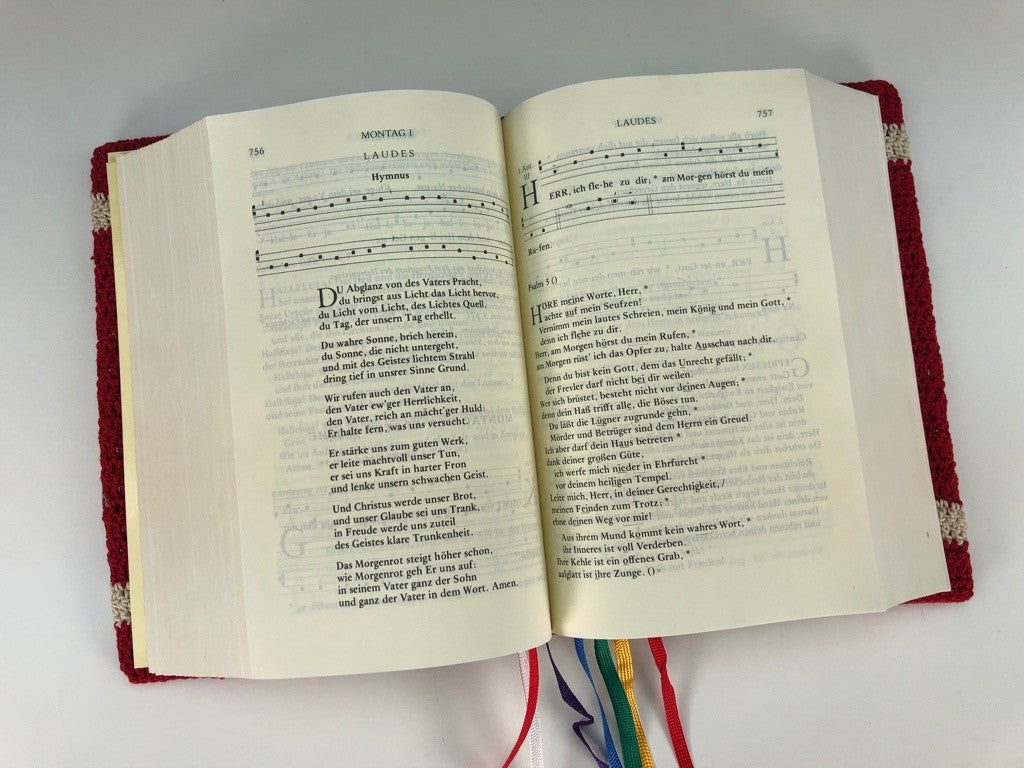 756
MONTAG I
LAUDES
Hymnus
DU Abglanz von des Vaters Pracht,
du bringst aus Licht das Licht hervor,
du Licht vom Licht, des Lichtes Quell,
du Tag, der unsern Tag erhellt.
Du wahre Sonne, brich herein,
du Sonne, die nicht untergeht,
und mit des Geistes lichtem Strahl
dring tief in unsrer Sinne Grund.
Wir rufen auch den Vater an,
den Vater ew'ger Herrlichkeit,
den Vater, reich an mächt'ger Huld:
Er halte fern, was uns versucht.
Er stärke uns zum guten Werk,
er leite machtvoll unser Tun,
er sei uns Kraft in harter Fron
und lenke unsern schwachen Geist.
Und Christus werde unser Brot,
und unser Glaube sei uns Trank,
in Freude werde uns zuteil
des Geistes klare Trunkenheit.
Das Morgenrot steigt höher schon,
wie Morgenrot geh Er uns auf:
in seinem Vater ganz der Sohn
und ganz der Vater in dem Wort. Amen.
LAUDES
757
1. Ant.
III
HERR, ich fle-he zu dir; * am Mor-gen hörst du mein
Ru-fen.
Psalm 5 ()
HÖRE meine Worte, Herr, *
achte auf mein Seufzen!
Vernimm mein lautes Schreien, mein König und mein Gott, *
denn ich flehe zu dir.
Herr, am Morgen hörst du mein Rufen, *
am Morgen rüst' ich das Opfer zu, halte Ausschau nach dir.
Denn du bist kein Gott, dem das Unrecht gefällt; *
der Frevler darf nicht bei dir weilen.
Wer sich brüstet, besteht nicht vor deinen Augen; *
denn dein Haß trifft alle, die Böses tun.
Du läßt die Lügner zugrunde gehn, *
Mörder und Betrüger sind dem Herrn ein Greuel.
Ich aber darf dein Haus betreten *
dank deiner großen Güte,
ich werfe mich nieder in Ehrfurcht *
vor deinem heiligen Tempel.
Leite mich, Herr, in deiner Gerechtigkeit, /
meinen Feinden zum Trotz; *
ebne deinen Weg vor mir!
Aus ihrem Mund kommt kein wahres Wort, *
ihr Inneres ist voll Verderben.
Ihre Kehle ist ein offenes Grab, *
aalglatt ist ihre Zunge. ()